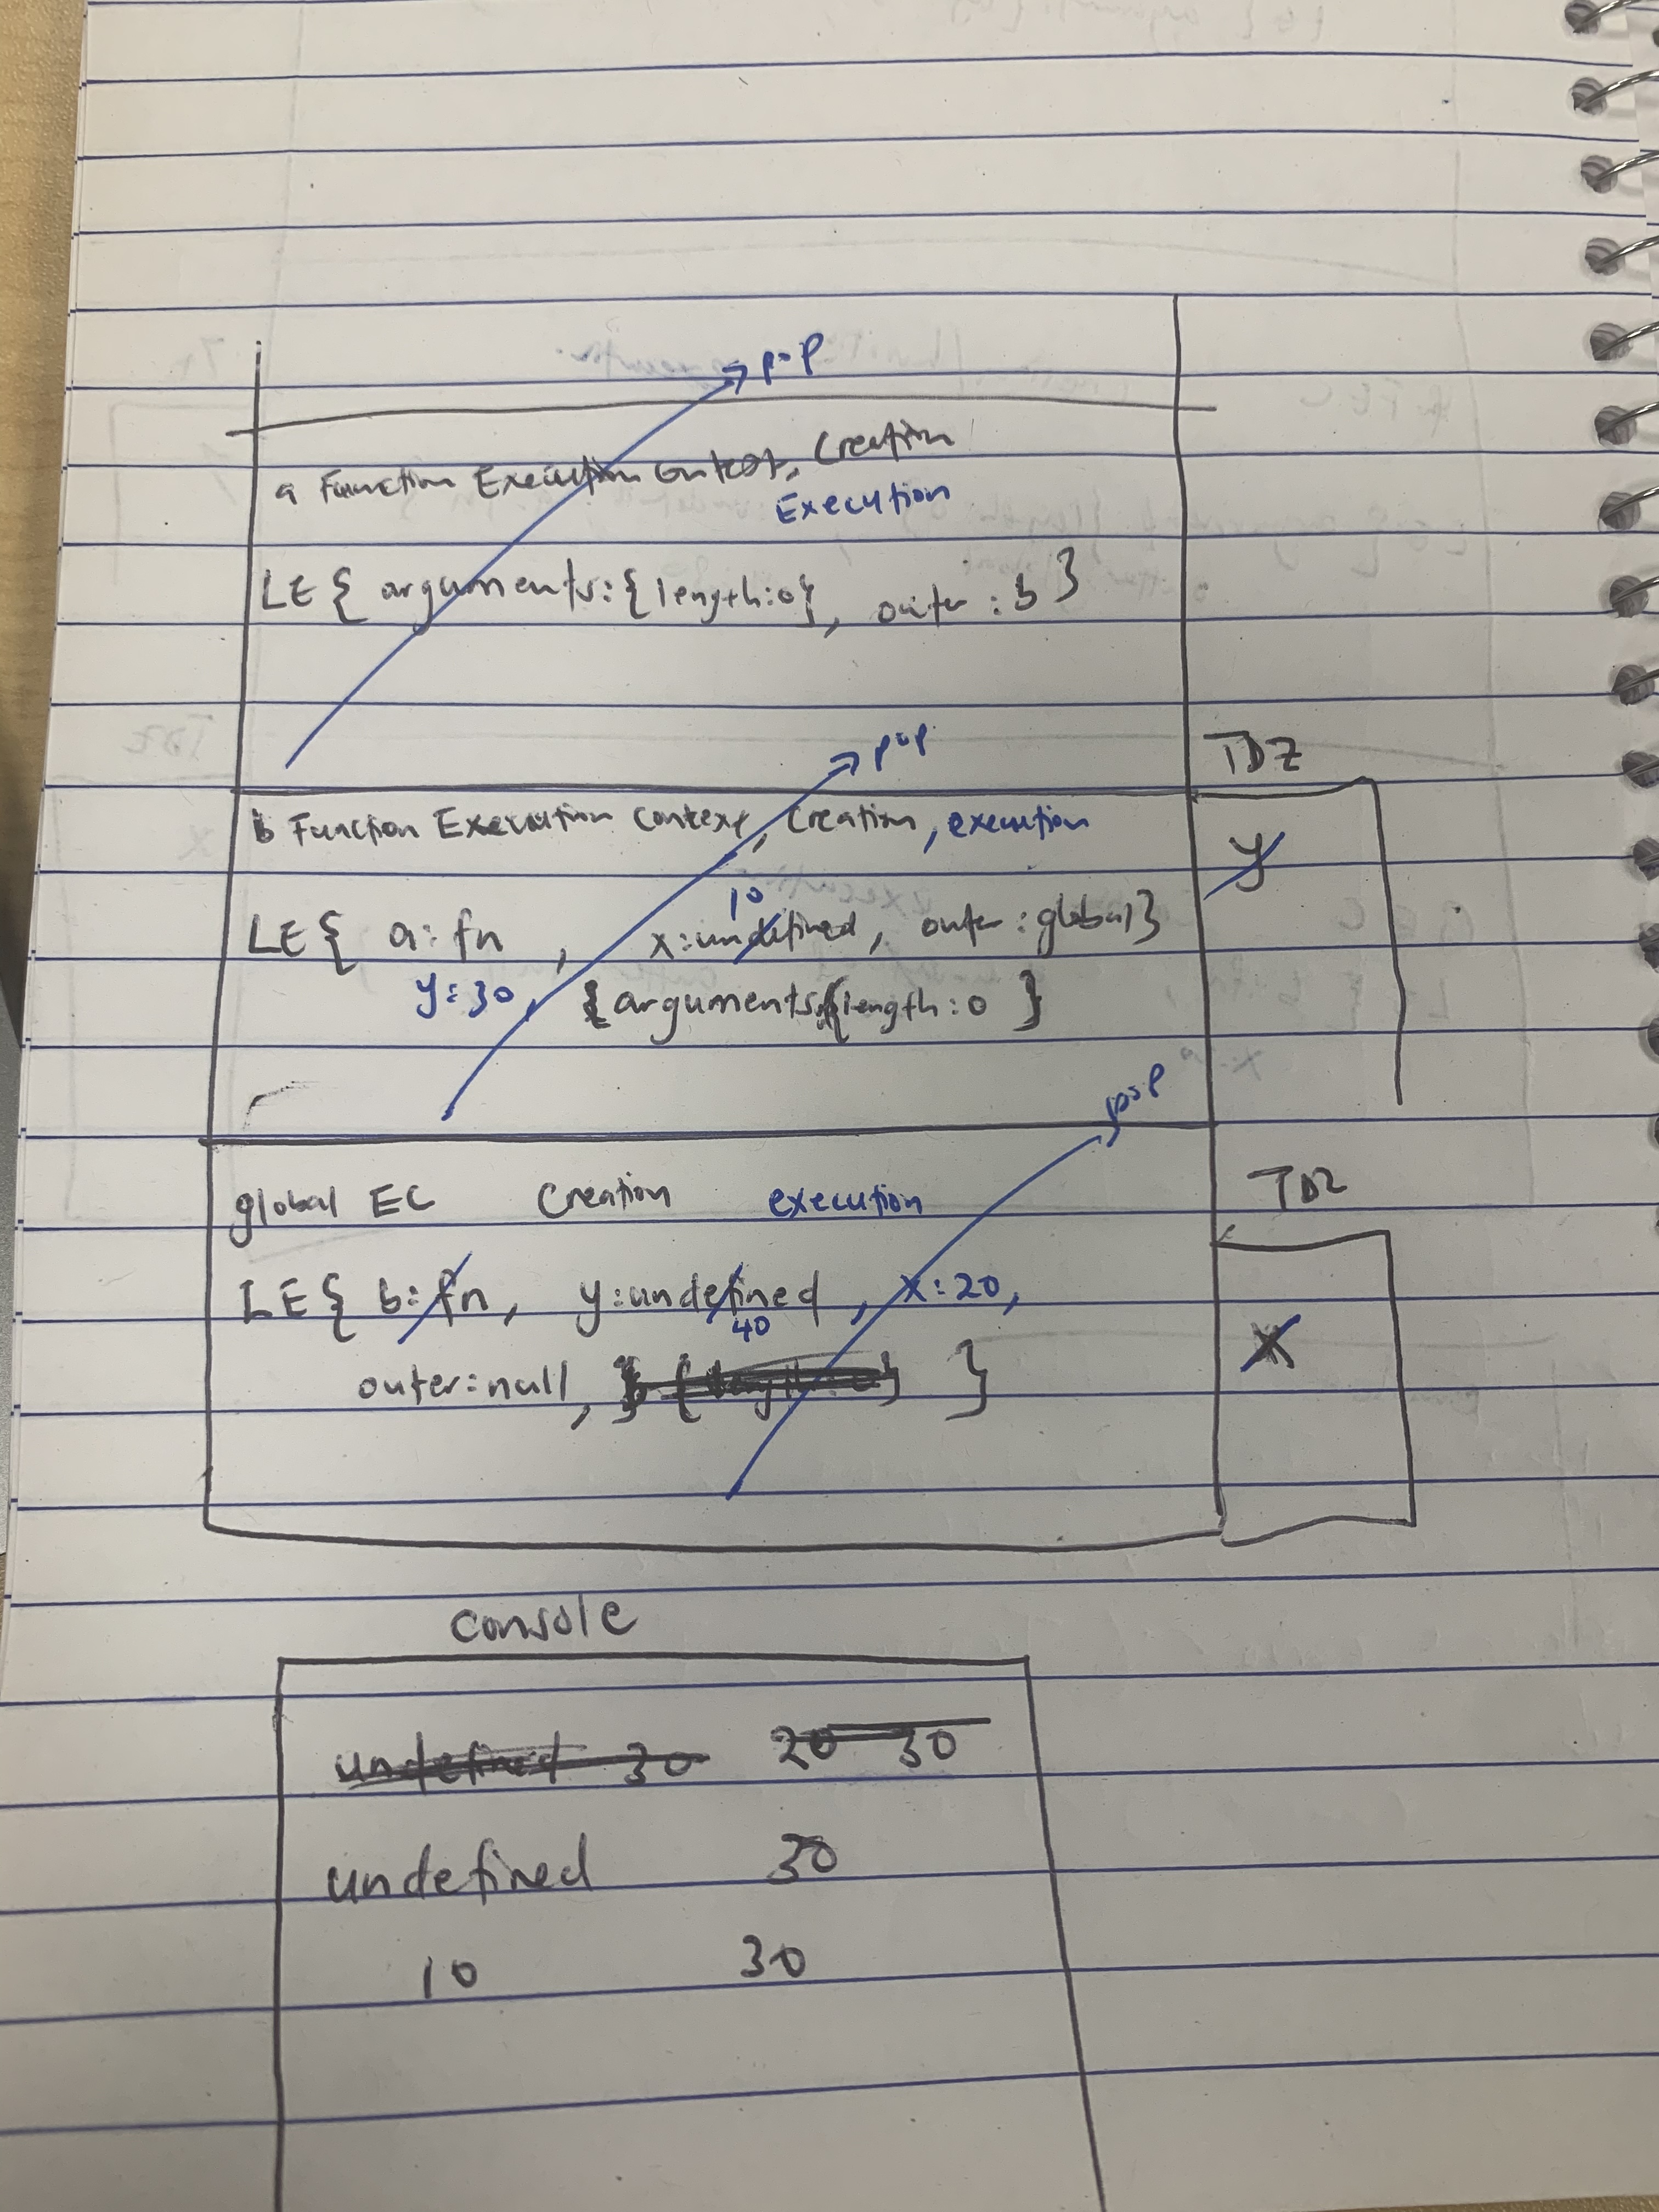 pop
a Function Execution Context, Creation
Execution
LE { arguments:{length:0}, outer : b }
pop
TDZ
b Function Execution Context, Creation, execution
y
10
LE { a: fn , x:undefined, outer : global}
y:30, { arguments{length:0 }
pop
global EC Creation execution
TDZ
LE { b: fn, y:undefined , x:20,
40
x
outer:null, }
Console
undefined 30 20 30
undefined 30
10 30